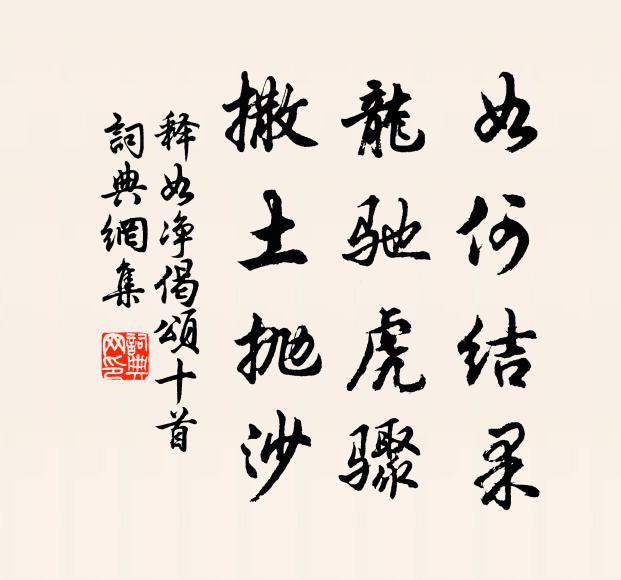 如何结果
龍驰虎骤
撒土抛沙
释如净偈颂十首
詞典網集
詞典网印